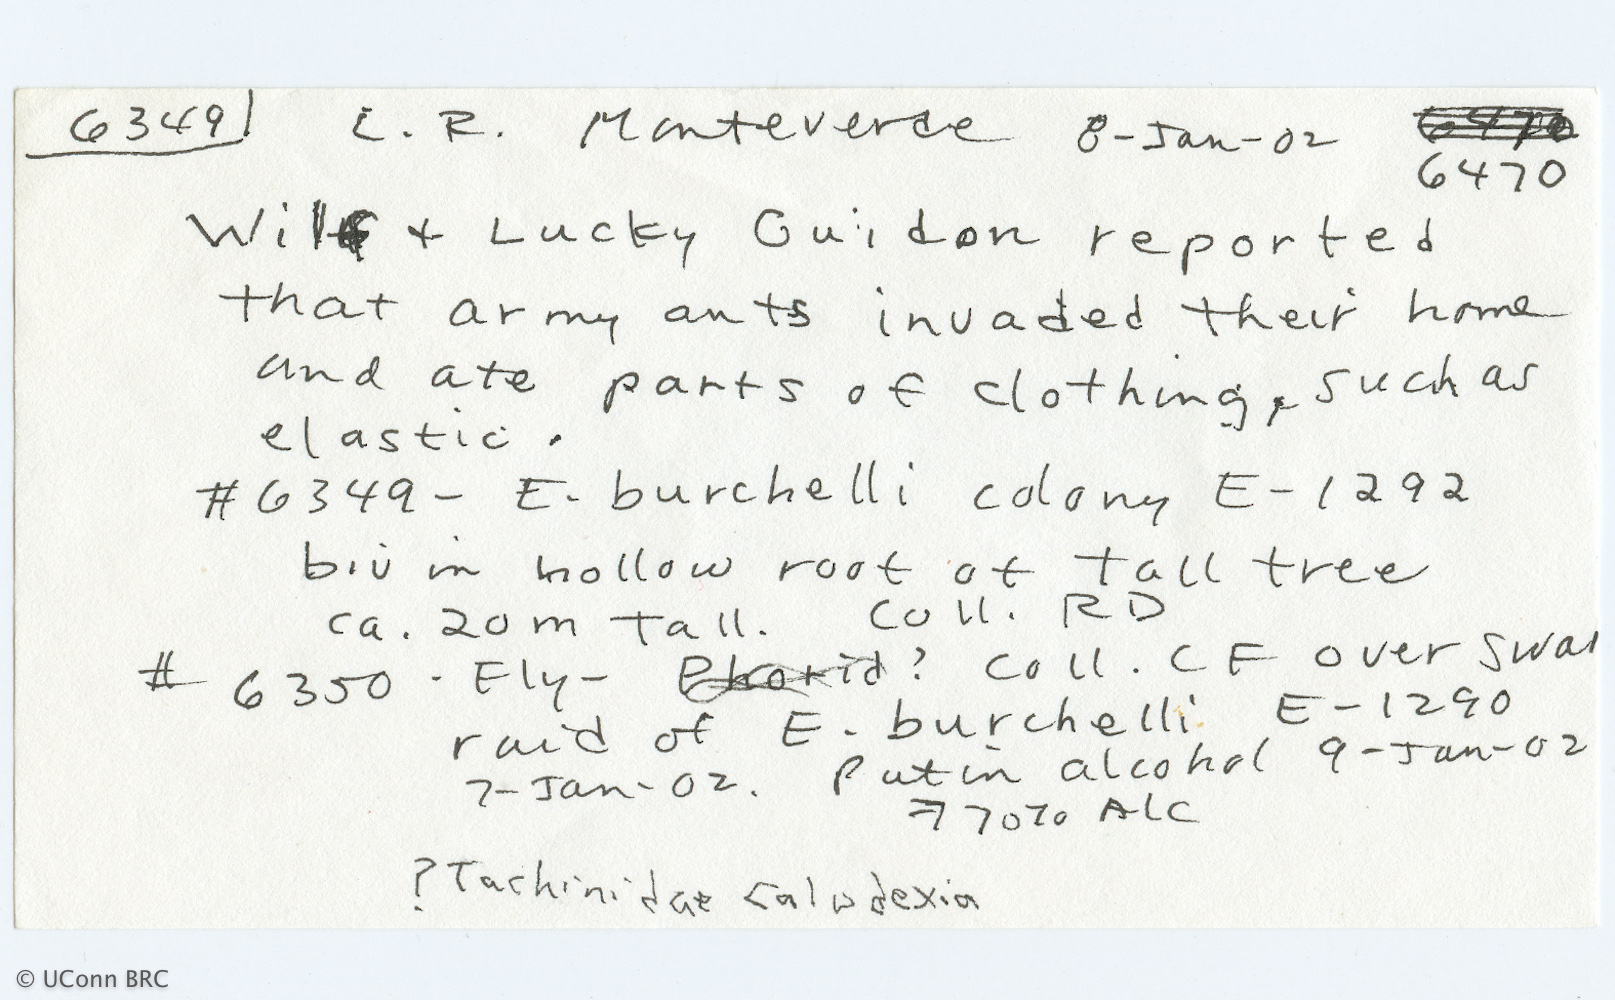 6349 C.R. Monteverde 8-Jan-02
6470
Wilf + Lucky Guidon reported
that army ants invaded their home
and ate parts of clothing, such as
elastic.
#6349- E. burchelli colony E-1292
biv in hollow root of tall tree
ca. 20m tall. Coll. RD
# 6350 - Fly- Phorid? Coll. CF over swar
raid of E. burchelli E-1290
7-Jan-02. Put in alcohol 9-Jan-02
70% Alc
?Tachinidae Calodexia
© UConn BRC